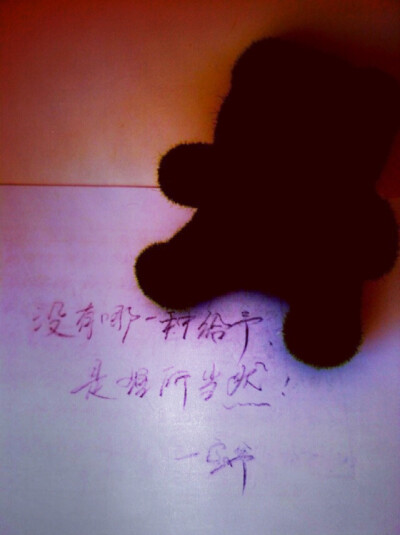 没有哪一种给予,
是理所当然!